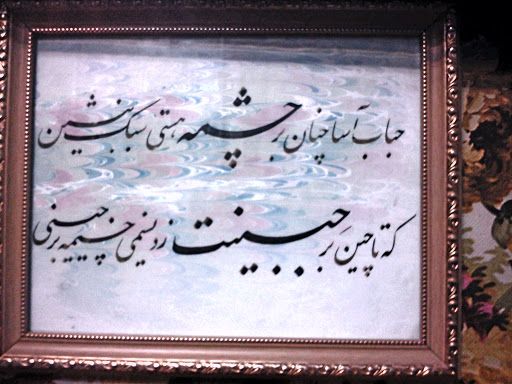 حباب آسا چنان بر چشمه هستی سبک بنشین
که تا چین بر جبینت زد نسیمی خیمه برچینی